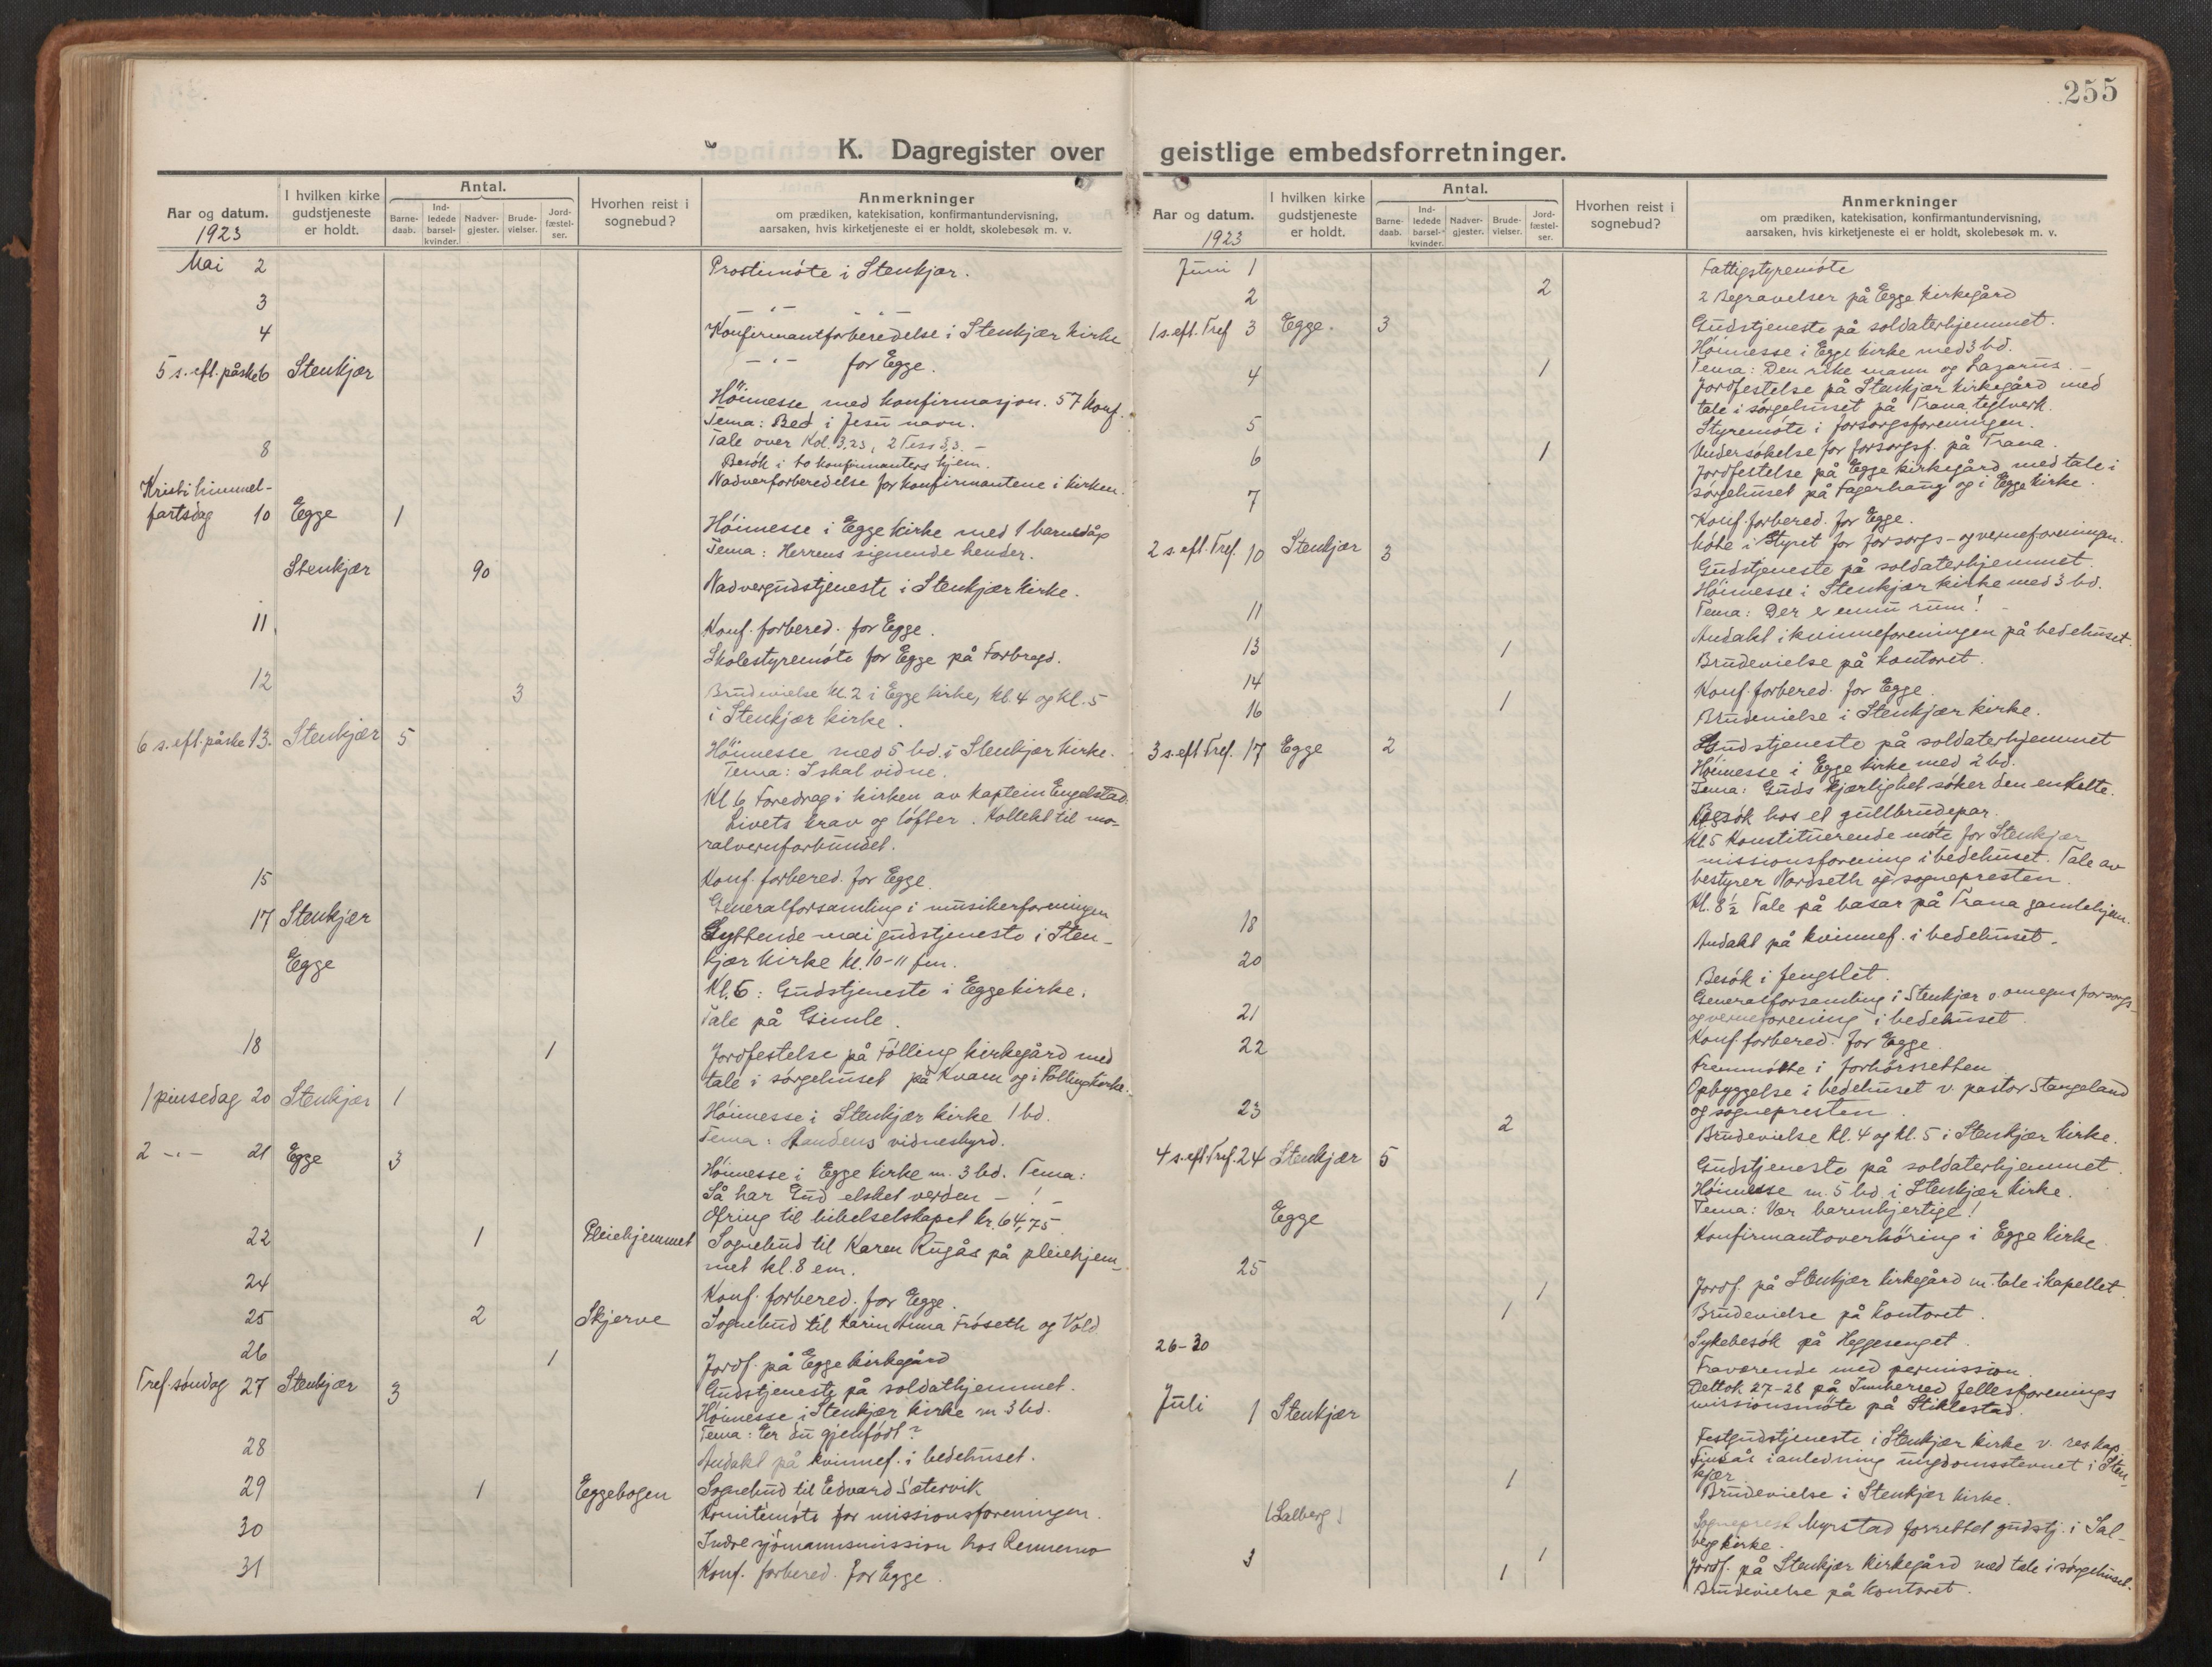 255
K. Dagregister over geistlige embedsforretninger.
Aar og datum.
1923
I hvilken kirke gudstjeneste er holdt.
Antal.
Barne-daab.
Ind-ledede barsel-kvinder.
Nadver-gjester.
Brude-vielser.
Jord-fæstel-ser.
Hvorhen reist i sognebud?
Anmerkninger
om prædiken, katekisation, konfirmantundervisning,
aarsaken, hvis kirketjeneste ei er holdt, skolebesøk m. v.
Mai 2 Prostimöte i Stenkjær.
3 — " — — " —
4 Konfirmantforberedelse i Stenkjær kirke
— " — for Egge.
5 s. eft. påske 6 Stenkjær
Höimesse med konfirmasjon. 57 konf.
Tema: Bed i Jesu navn.
Tale over Kol. 3.23, 2 Tess 3,3. —
8 Besök i to konfirmanters hjem.
Nadverforberedelse for konfirmantene i kirken.
Kristi himmel-
fartsdag 10 Egge 1 Höimesse i Egge kirke med 1 barnedåp
Tema: Herrens signende hender.
Stenkjær 90 Nadvergudstjeneste i Stenkjær kirke.
11. Konf. forbered. for Egge.
Skolestyremöte for Egge på Forbregd.
12 3 Brudevielse kl. 2 i Egge kirke, kl. 4 og kl. 5
i Stenkjær kirke.
6 s. eft. påske 13. Stenkjær 5 Höimesse med 5 bd. i Stenkjær kirke.
Tema: I skal vidne.
Kl 6 Foredrag i kirken av kaptein Engelstad:
Livets krav og löfter. Kollekt til mo-
ralvernforbundet.
15 Konf. forbered. for Egge.
Generalforsamling i musikerforeningen
17 Stenkjær Syttende-mai gudstjeneste i Sten-
kjær kirke kl. 10-11 fm.
Egge Kl. 6: Gudstjeneste i Egge kirke.
Tale på Gimle.
18 1 Jordfestelse på Fölling kirkegård med
tale i sørgehuset på Kvam og i Fölling kirke.
1 pinsedag 20 Stenkjær 1 Höimesse i Stenkjær kirke 1 bd.
Tema: Aandens vidnesbyrd.
2 - " - 21 Egge 3 Höimesse i Egge kirke m. 3 bd. Tema:
Så har Gud elsket verden — ! —
Ofring til bibelselskapet kr. 64,75
22 1 Pleiehjemmet Sognebud til Karen Rugås på pleiehjem-
met kl. 8 em.
24 Konf. forbered. for Egge.
25 2 Skjerve Sognebud til Karin Anna Fröseth og Vold
26 1 Jordf. på Egge kirkegård
Tref. söndag 27 Stenkjær 3 Gudstjeneste på soldathjemmet.
Höimesse i Stenkjær kirke m 3 bd.
Tema: Er du gjenfödt?
28 Andakt på kvinnef. i bedehuset.
29 1 Eggebogen Sognebud til Edvard Sætervik
Komitémöte for missionsforeningen.
30 Indre sjömannsmission hos Rennemo
31 Konf. forbered. for Egge.
Aar og datum.
1923
I hvilken kirke gudstjeneste er holdt.
Antal.
Barne-daab.
Ind-ledede barsel-kvinder.
Nadver-gjester.
Brude-vielser.
Jord-fæstel-ser.
Hvorhen reist i sognebud?
Anmerkninger
om prædiken, katekisation, konfirmantundervisning,
aarsaken, hvis kirketjeneste ei er holdt, skolebesøk m. v.
Juni 1 Fattigstyremöte
2 2 2 Begravelser på Egge kirkegård
1 s. eft. Tref 3 Egge. 3 Gudstjeneste på soldaterhjemmet.
Höimesse i Egge kirke med 3 bd.
Tema: Den rike mann og Lazarus. —
4 1 Jordfestelse på Stenkjær kirkegård med
tale i sørgehuset på Trana teglverk.
5 Styremöte i forsorgsforeningen.
Undersökelse for forsorgsf. på Trana.
6 1 Jordfestelse på Egge kirkegård med tale i
sørgehuset på Fagerhaug og i Egge kirke.
7 Konf. forbered. for Egge.
Möte i styret for forsorgs- og verneforeningen.
2 s. eft. Tref. 10 Stenkjær 3 Gudstjeneste på soldaterhjemmet.
Höimesse i Stenkjær kirke med 3 bd.
Tema: Der er ennu rum! —
11 Andakt i kvinneforeningen på bedehuset.
13 1 Brudevielse på kontoret.
14 Konf. forbered. for Egge.
16 1 Brudevielse i Stenkjær kirke.
3 s. eft Tref. 17 Egge 2 Gudstjeneste på soldaterhjemmet
Höimesse i Egge kirke med 2 bd.
Tema: Guds kjærlighet söker den enkelte.
Besök hos et gullbrudepar.
Kl. 5 Konstituerende möte for Stenkjær
missionsforening i bedehuset. Tale av
bestyrer Nordseth og sognepresten.
Kl. 8½ Tale på basar på Trana gamlehjem.
18 Andakt på kvinnef. i bedehuset.
20 Besök i fengslet.
Generalforsamling i Stenkjær o. omegns forsorgs-
og verneforening i bedehuset.
21 Konf. forbered. for Egge
22 Fremmötte i forhörsretten
Opbyggelse i bedehuset v. pastor Stangeland
og sognepresten.
23 2 Brudevielse kl. 4 og kl. 5 i Stenkjær kirke.
4 s. eft. Tref. 24 Stenkjær 5 Gudstjeneste på soldaterhjemmet.
Höimesse m. 5 bd. i Stenkjær kirke.
Tema: Vær barmhjertige!
Egge Konfirmantoverhöring i Egge kirke.
25 1 Jordf. på Stenkjær kirkegård m. tale i kapellet.
1 Brudevielse på kontoret.
Sykebesök på Heggesenget.
26-30 Fraværende med permission.
Deltok 27-28 på Innherred fellesforenings
missionsmöte på Stiklestad.
Juli 1 Stenkjær Festgudstjeneste i Stenkjær kirke v. res. kap.
i anledning ungdomsstevnet i Sten-
kjær.
1 Brudevielse i Stenkjær kirke.
(Salberg) Sogneprest Myrstad forrettet gudstj. i Sal-
berg kirke.
3 1 Jordf. på Stenkjær kirkegård med tale i sørgehuset.
1 Brudevielse på kontoret.